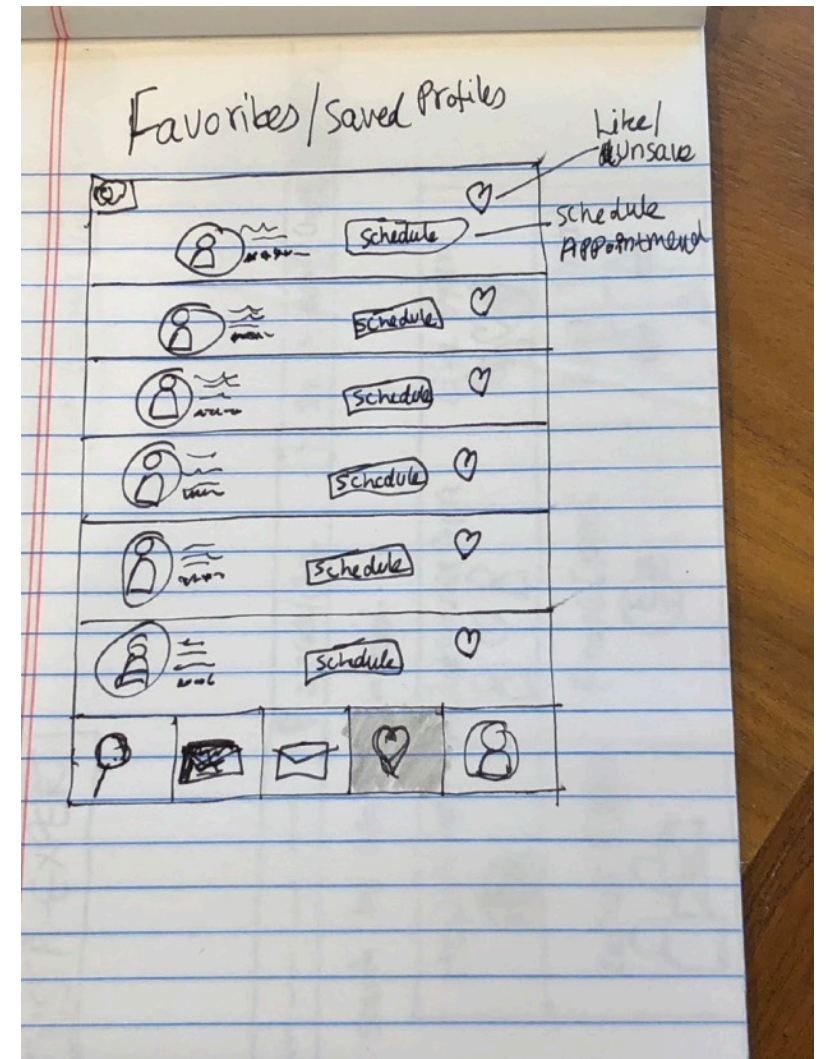 Favorites/Saved Profiles
Like/
Unsave
Schedule
Appointmend
Schedule
Schedule
Schedule
Schedule
Schedule
Schedule